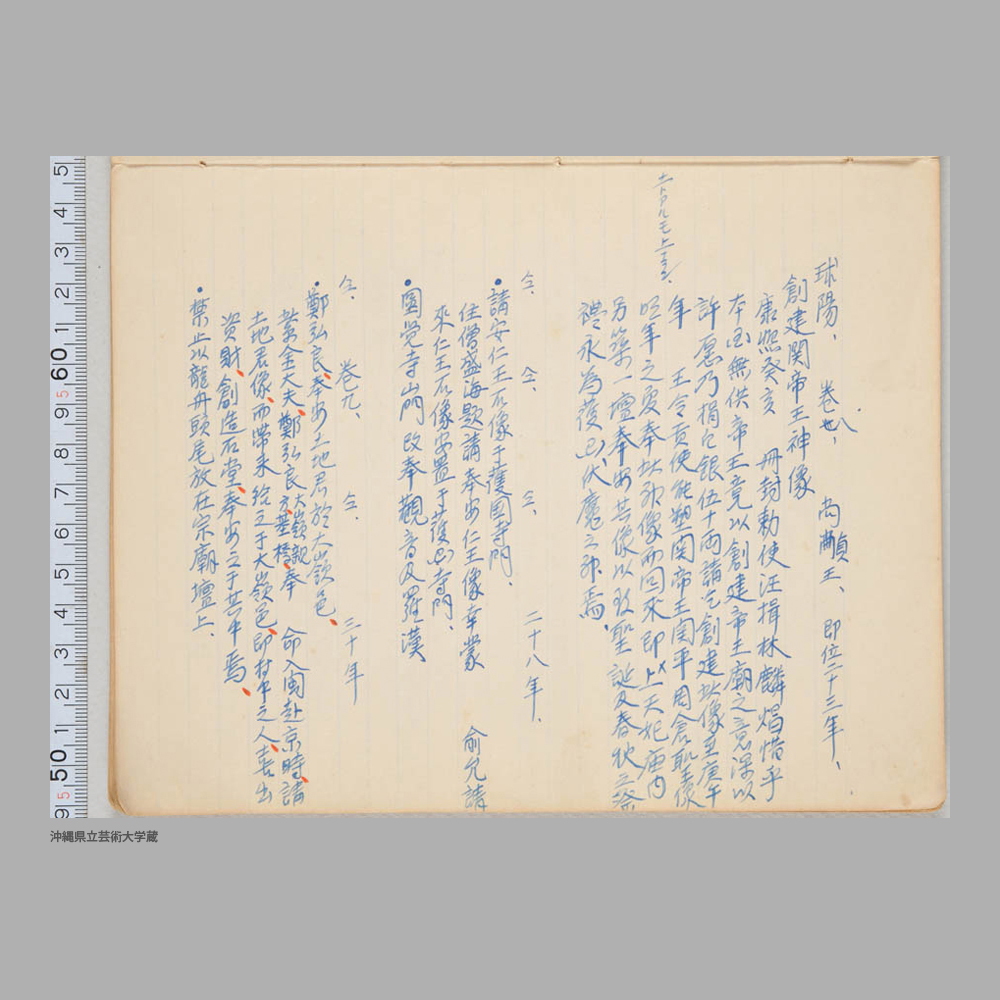 球陽、 巻七八、 尚貞王、 即位二十三年、
創建関帝王神像
康熙癸亥 冊封勅使汪揖林麟焻惜乎
本国無供帝王竟以創建帝王廟之意深以
許愿乃捐白銀伍十両請乞創建此像至庚午
年 王令貢使能塑関帝王関平周倉聖像
旺年之夏奉此神像而回来即上天妃庙内
另築一壇奉安其像以致聖誕及春秋三祭
禮永為護国、伏魔之神焉、
トアルモ上
仝、 仝、 仝、 二十八年、
・請安仁王石像于護国寺門、
住僧盛海題請奉安仁王像幸蒙 俞允請
来仁王石像安置于護国寺門、
・圓覚寺山門改奉觀音及羅漢
仝、 巻九、 仝、 三十年
・鄭弘良、奉安土地君於大嶺邑、
紫金大夫、鄭弘良大嶺親方基橋、奉 命入閩赴京時、請
土地君像、而帯来給之于大嶺邑、即村中之人、喜出
資財、創造石堂、奉安之于其中焉、
・禁止以龍舟頭尾放在宗廟壇上、
5 4 3 2 1 60 9 8 7 6 5 4 3 2 1 50 9
沖縄県立芸術大学蔵